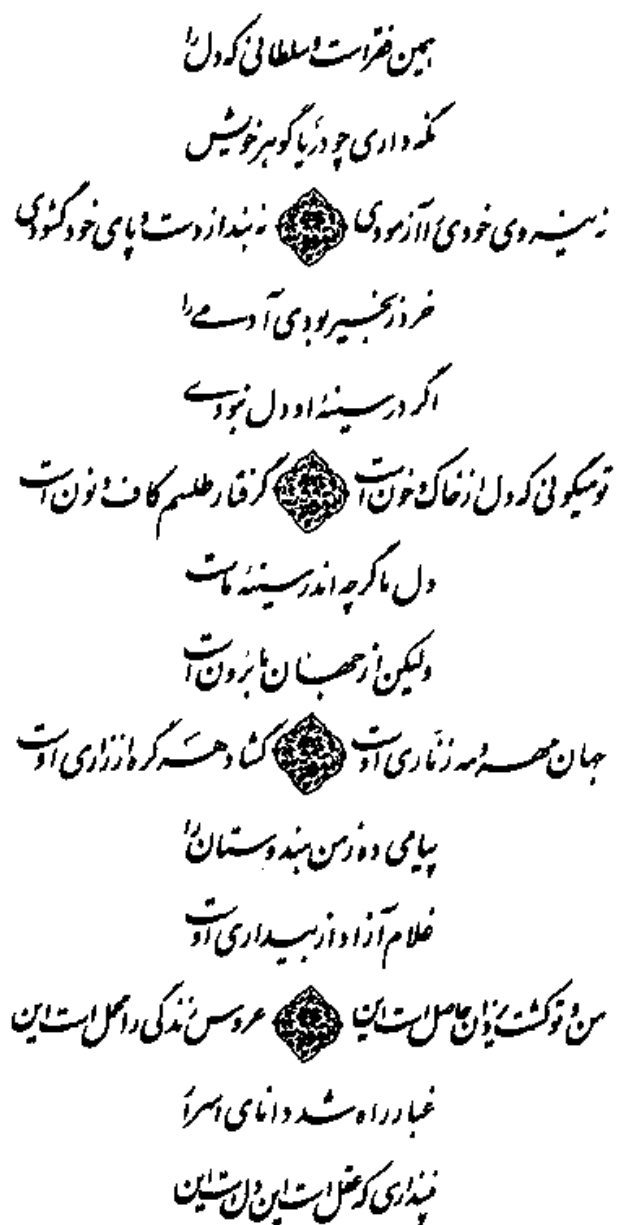 همین فقر است و سلطانی که دل را
نگه داری چو دریا گوهر خویش
نه نیروی خودی را آزمودی نه بند از دست و پای خود گشودی
خرد زنجیر بودی آدمی را
اگر در سینهٔ او دل نبودی
تو میگوئی که دل از خاک و خون است گرفتار طلسم کاف و نون است
دل ما گرچه اندر سینهٔ ماست
ولیکن از جهان ما برون است
جهان مهر و مه زناری اوست گشاد هر گره از زاری اوست
پیامی ده ز من هندوستان را
غلام آزاد از بیداری اوست
من و تو کشت یزدان حاصل است این عروس زندگی را محمل است این
غبار راه شد دانای اسرار
نپنداری که عقل است این دل است این